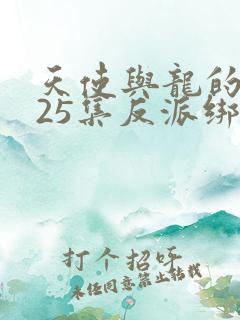 天使與龍的
25集反派綁
打个招呼
未经同意禁止转载